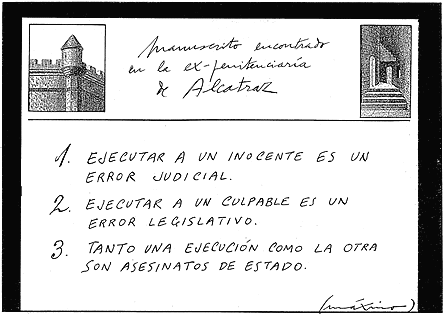 manuscrito encontrado
en la ex-penitenciaría
de Alcatraz
1. EJECUTAR A UN INOCENTE ES UN
ERROR JUDICIAL.
2. EJECUTAR A UN CULPABLE ES UN
ERROR LEGISLATIVO.
3. TANTO UNA EJECUCIÓN COMO LA OTRA
SON ASESINATOS DE ESTADO.
(máximo)